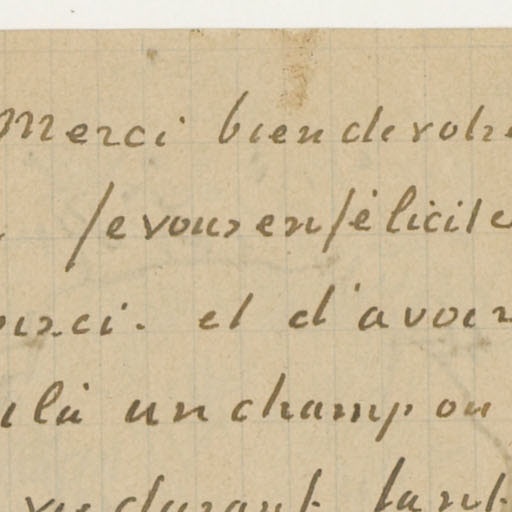 Merci bien de votre
Je vous en félicite
et d'avoir
là un champ ou
vu durant tant